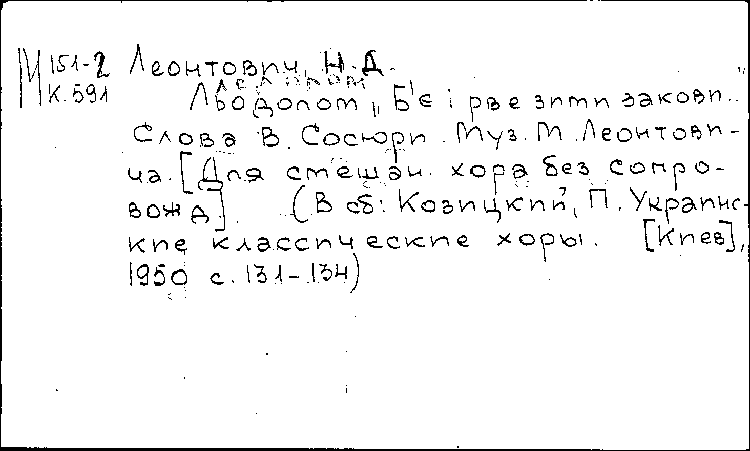 М 151-2 Леонтович, Н. Д.
К. 591 Льодолом „Б'є і рве зими закови..."
Слова В. Сосюри. Муз. М. Леонтови-
ча. [Для смешан. хора без сопро-
вожд]. (В сб: Козицкий, П. Украинс-
кие классические хоры. [Киев],
1950 с. 131-134)